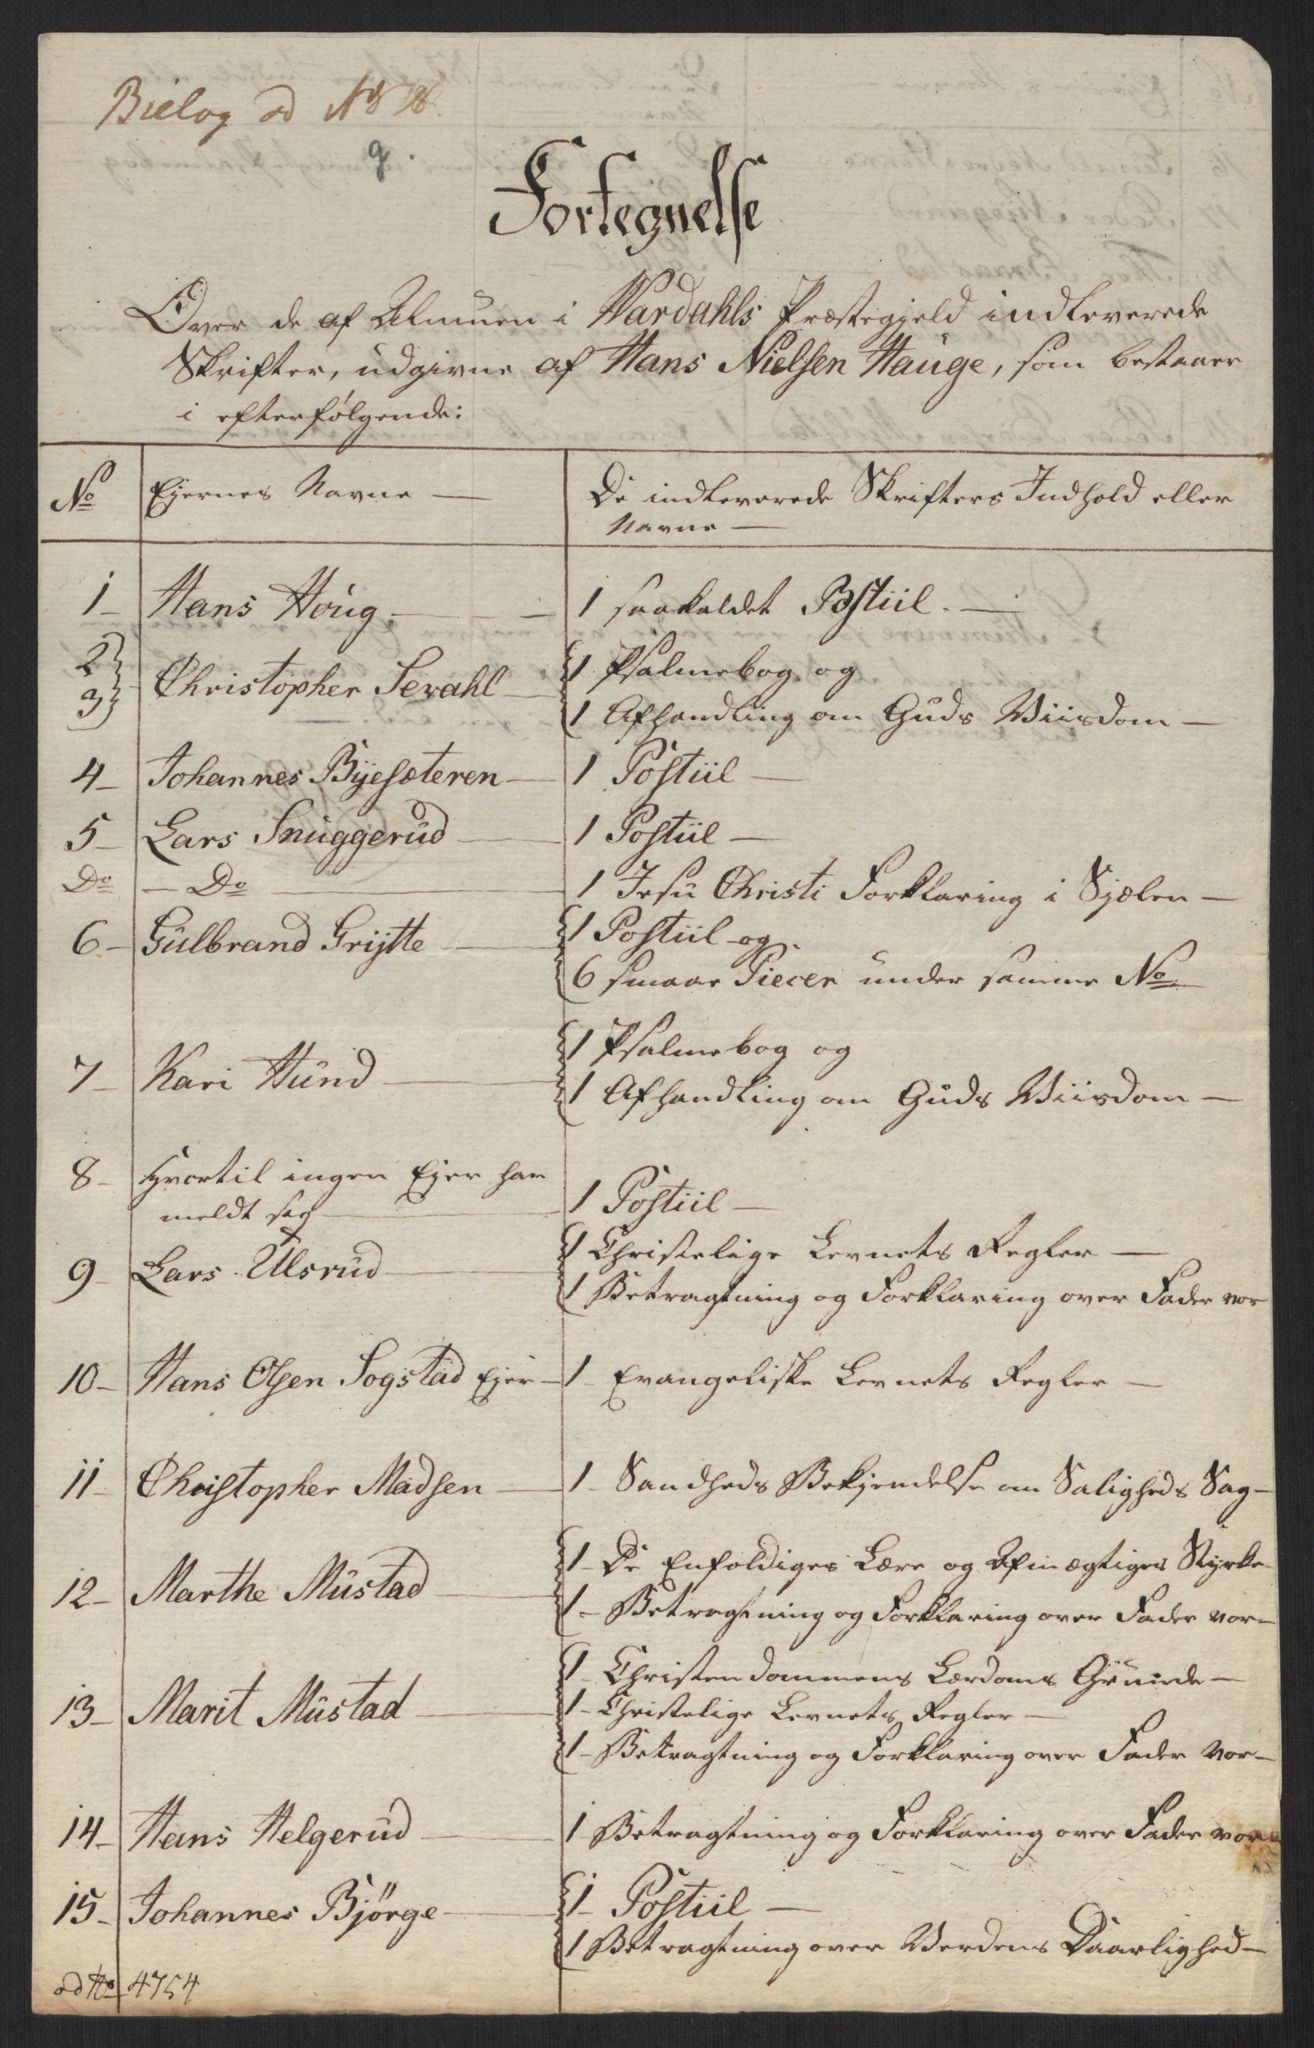 Bielag ad No 8
9
Fortegnelse
Over de af Almuen i Wardahls Præstegjeld indleverede
Skrifter, udgivne af Hans Nielsen Hauge, som bestaaer
i efterfølgende:
No Ejernes Navne — De indleverede Skrifters Indhold eller
Navne —
1 — Hans Houg. — 1 saakaldet Postiil. —
2 1 Psalmebog og
3 Christopher Sevahl — 1 Afhandling om Guds Viisdom —
4 — Johannes Byesæteren — 1 Postiil —
5 — Lars Snuggerud — 1 Postiil —
Do — Do — 1 Jesu Christi Forklaring i Sjælen —
6 — Gulbrand Grytte — 1 Postiil og
6 smaae Piecer under samme No
7 — Kari Hund — 1 Psalmebog og
1 Afhandling om Guds Viisdom —
8 — Hvortil ingen Ejer har
meldt sig — 1 Postiil —
9 — Lars Ulsrud — 1 Christelige Levnets Regler —
1 Betragtning og Forklaring over Fader vor
10 — Hans Olsen Sogstad Ejer — 1 Evangeliske Levnets Regler —
11 — Christopher Madsen — 1 Sandheds Bekjendelse om Saligheds Sag —
12 — Marthe Mustad — 1 — De Enfoldiges Lære og Afmægtiges Styrke
1 — Betragtning og Forklaring over Fader vor —
1 — Christendommens Lærdoms Grunde —
13 — Marit Mustad — 1 — Christelige Levnets Regler —
1 — Betragtning og Forklaring over Fader vor —
14 — Hans Helgerud — 1 Betragtning og Forklaring over Fader vor
15 — Johannes Bjørge — 1 — Postiil —
1 Betragtning over Verdens Daarlighed —
ad No 4754